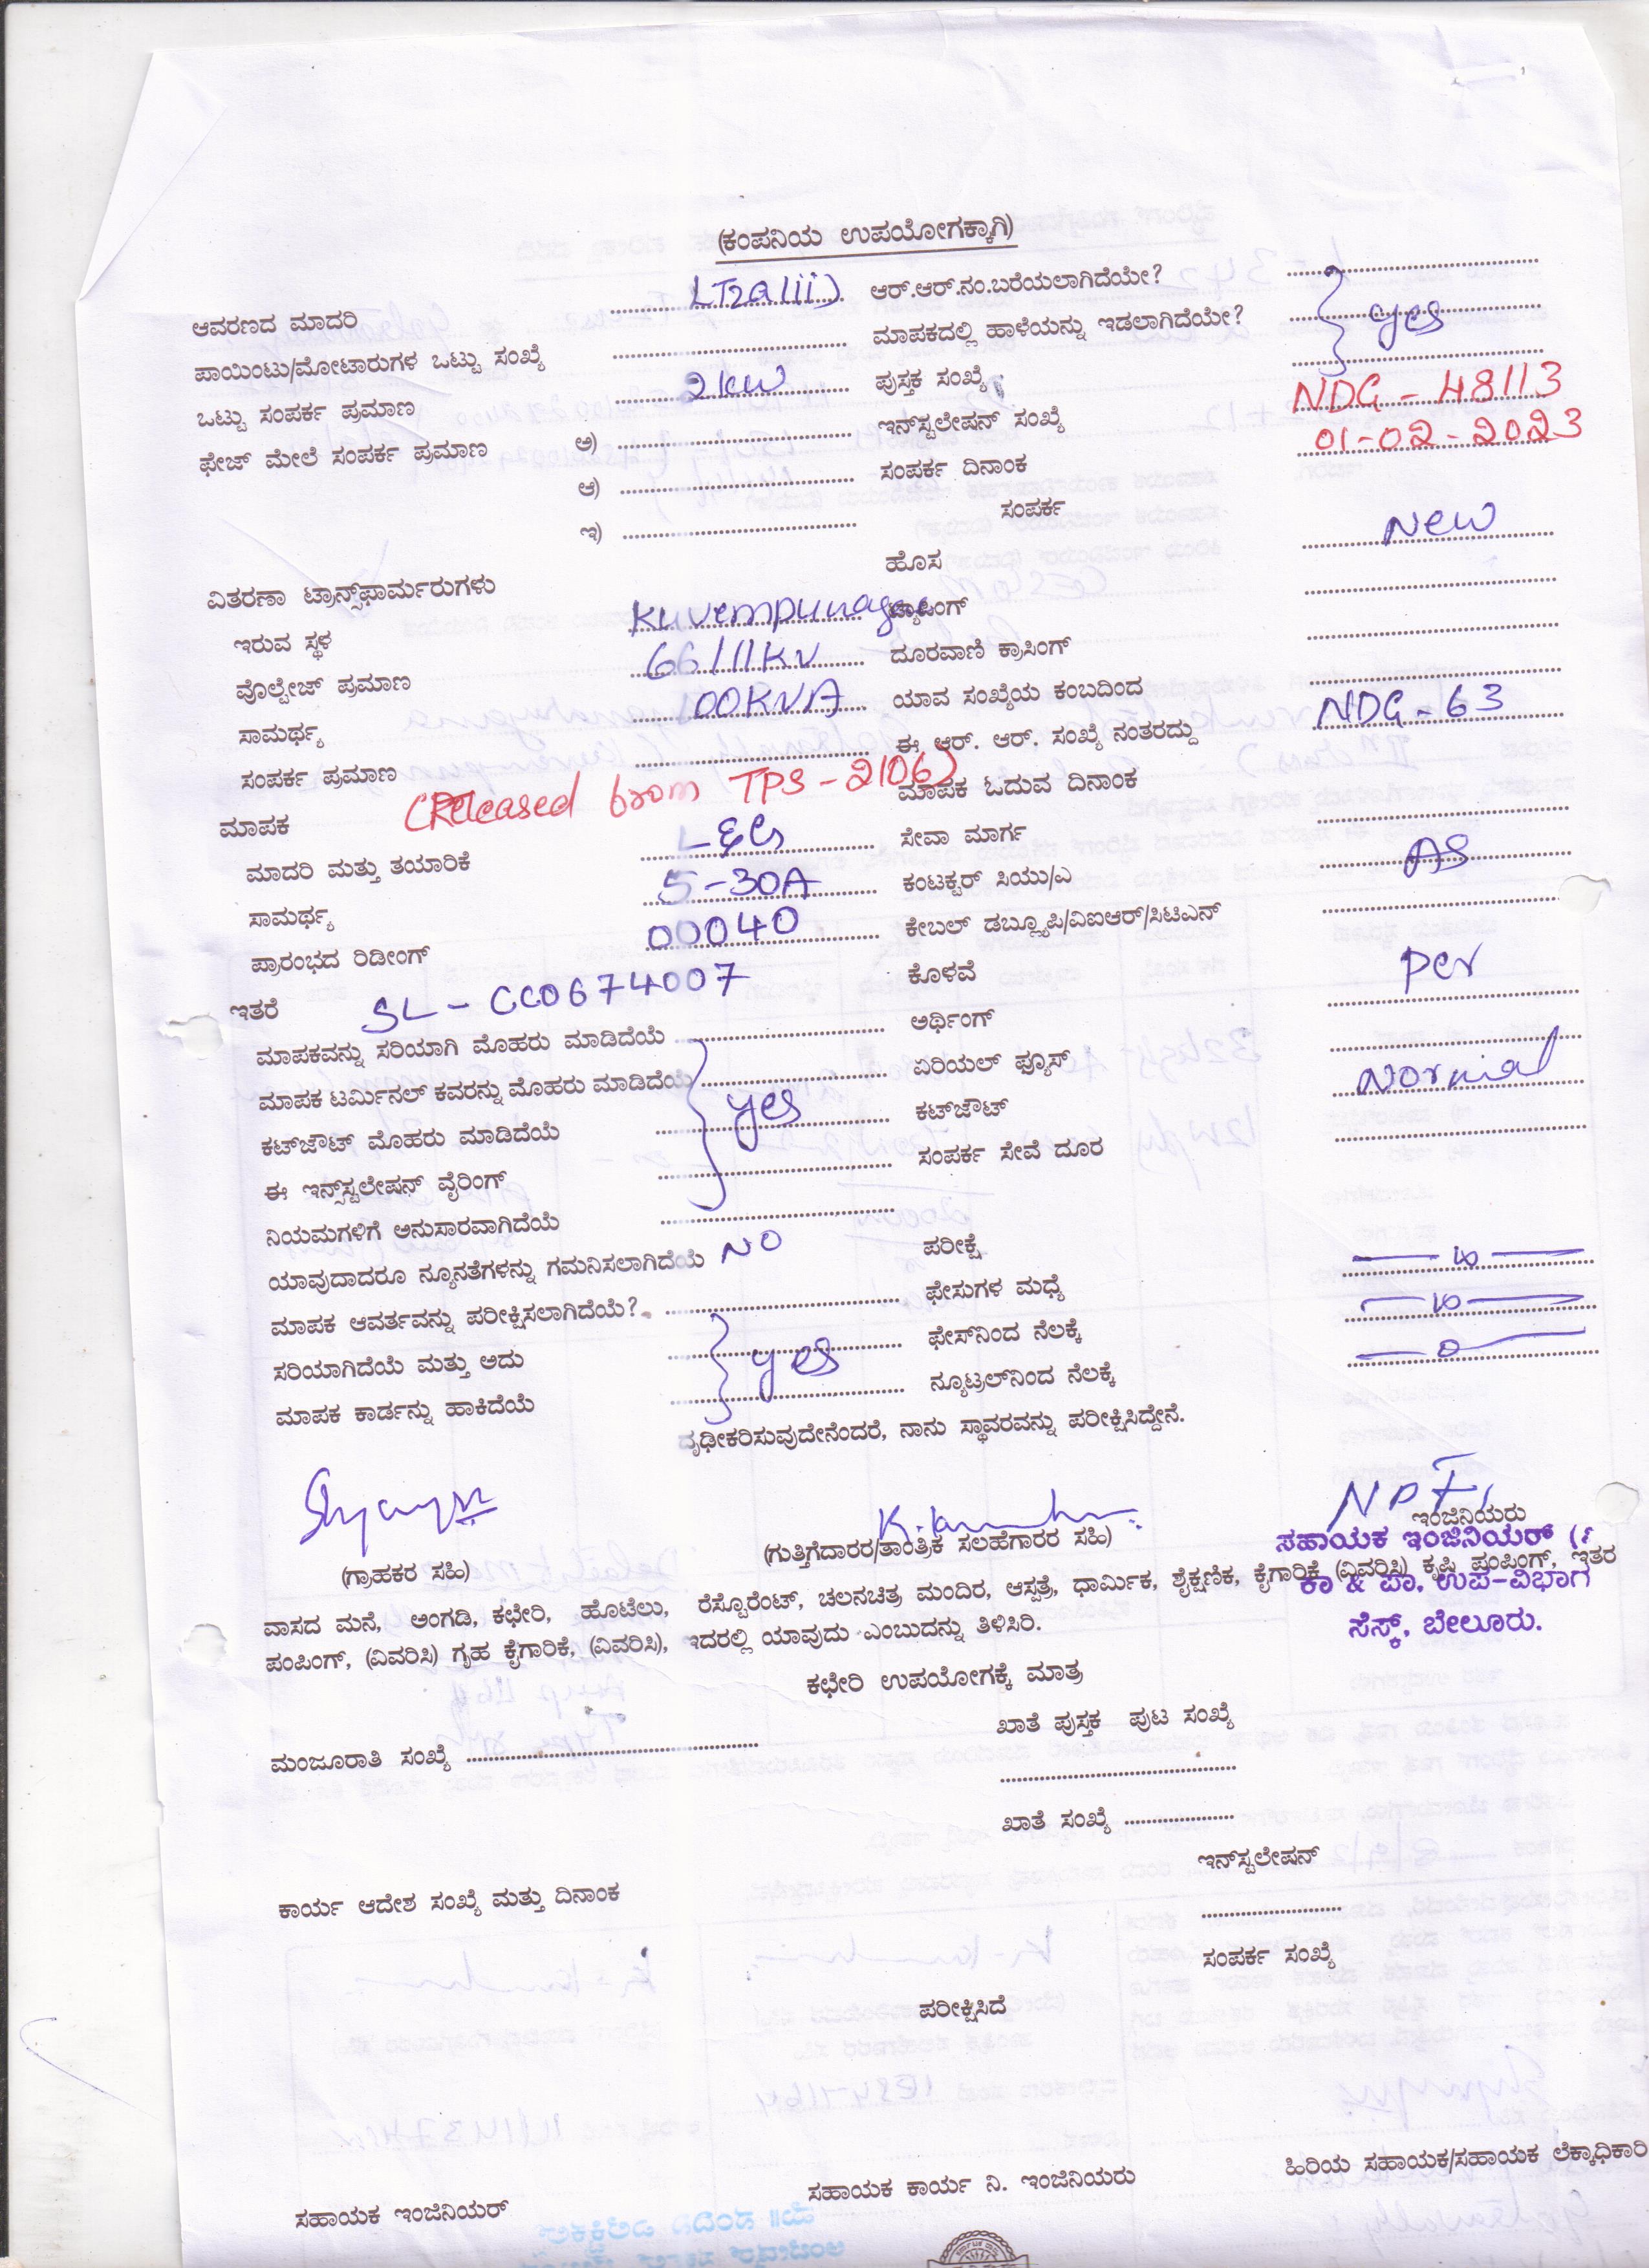 (ಕಂಪನಿಯ ಉಪಯೋಗಕ್ಕಾಗಿ)
ಆವರಣದ ಮಾದರಿ LT2a(iii) ಆರ್.ಆರ್.ನಂ.ಬರೆಯಲಾಗಿದೆಯೇ?
ಪಾಯಿಂಟು/ಮೋಟಾರುಗಳ ಒಟ್ಟು ಸಂಖ್ಯೆ ಮಾಪಕದಲ್ಲಿ ಹಾಳೆಯನ್ನು ಇಡಲಾಗಿದೆಯೇ? yes
ಒಟ್ಟು ಸಂಪರ್ಕ ಪ್ರಮಾಣ 2KW ಪುಸ್ತಕ ಸಂಖ್ಯೆ
ಫೇಜ್ ಮೇಲೆ ಸಂಪರ್ಕ ಪ್ರಮಾಣ ಅ) ಇನ್‌ಸ್ಟಲೇಷನ್ ಸಂಖ್ಯೆ NDG - 48113
ಆ) ಸಂಪರ್ಕ ದಿನಾಂಕ 01-02-2023
ಇ) ಸಂಪರ್ಕ
ಹೊಸ New
ವಿತರಣಾ ಟ್ರಾನ್ಸ್‌ಫಾರ್ಮರುಗಳು
ಇರುವ ಸ್ಥಳ Kuvempunagar ಟ್ಯಾಪಿಂಗ್
ವೊಲ್ಟೇಜ್ ಪ್ರಮಾಣ 66/11KV ದೂರವಾಣಿ ಕ್ರಾಸಿಂಗ್
ಸಾಮರ್ಥ್ಯ 100KVA ಯಾವ ಸಂಖ್ಯೆಯ ಕಂಬದಿಂದ
ಸಂಪರ್ಕ ಪ್ರಮಾಣ ಈ ಆರ್. ಆರ್. ಸಂಖ್ಯೆ ನಂತರದ್ದು NDG - 63
ಮಾಪಕ (Released from TPS - 2106) ಮಾಪಕ ಓದುವ ದಿನಾಂಕ
ಮಾದರಿ ಮತ್ತು ತಯಾರಿಕೆ L&G ಸೇವಾ ಮಾರ್ಗ
ಸಾಮರ್ಥ್ಯ 5-30A ಕಂಟಕ್ಟರ್ ಸಿಯು/ಎ AS
ಪ್ರಾರಂಭದ ರಿಡೀಂಗ್ 00040 ಕೇಬಲ್ ಡಬ್ಲ್ಯೂಪಿ/ವಿಐಆರ್/ಸಿಟಿಎನ್
ಇತರೆ SL - CC0674007 ಕೊಳವೆ per
ಮಾಪಕವನ್ನು ಸರಿಯಾಗಿ ಮೊಹರು ಮಾಡಿದೆಯೆ ಅರ್ಥಿಂಗ್
ಮಾಪಕ ಟರ್ಮಿನಲ್ ಕವರನ್ನು ಮೊಹರು ಮಾಡಿದೆಯೆ ಏರಿಯಲ್ ಫ್ಯೂಸ್ Normal
ಕಟ್‌ಔಟ್ ಮೊಹರು ಮಾಡಿದೆಯೆ yes ಕಟ್‌ಔಟ್
ಈ ಇನ್ಸ್‌ಸ್ಟಲೇಷನ್ ವೈರಿಂಗ್ ಸಂಪರ್ಕ ಸೇವೆ ದೂರ
ನಿಯಮಗಳಿಗೆ ಅನುಸಾರವಾಗಿದೆಯೆ
ಯಾವುದಾದರೂ ನ್ಯೂನತೆಗಳನ್ನು ಗಮನಿಸಲಾಗಿದೆಯೆ NO ಪರೀಕ್ಷೆ
ಮಾಪಕ ಆವರ್ತವನ್ನು ಪರೀಕ್ಷಿಸಲಾಗಿದೆಯೆ? ಫೇಸುಗಳ ಮಧ್ಯೆ
ಸರಿಯಾಗಿದೆಯೆ ಮತ್ತು ಅದು yes ಫೇಸ್‌ನಿಂದ ನೆಲಕ್ಕೆ
ಮಾಪಕ ಕಾರ್ಡನ್ನು ಹಾಕಿದೆಯೆ ನ್ಯೂಟ್ರಲ್‌ನಿಂದ ನೆಲಕ್ಕೆ
ದೃಢೀಕರಿಸುವುದೇನೆಂದರೆ, ನಾನು ಸ್ಥಾವರವನ್ನು ಪರೀಕ್ಷಿಸಿದ್ದೇನೆ.
(ಗ್ರಾಹಕರ ಸಹಿ) (ಗುತ್ತಿಗೆದಾರರ/ತಾಂತ್ರಿಕ ಸಲಹೆಗಾರರ ಸಹಿ) ಇಂಜಿನಿಯರು
ಸಹಾಯಕ ಇಂಜಿನಿಯರ್
ವಾಸದ ಮನೆ, ಅಂಗಡಿ, ಕಛೇರಿ, ಹೊಟೆಲು, ರೆಸ್ಟೊರೆಂಟ್, ಚಲನಚಿತ್ರ ಮಂದಿರ, ಆಸ್ಪತ್ರೆ, ಧಾರ್ಮಿಕ, ಶೈಕ್ಷಣಿಕ, ಕೈಗಾರಿಕೆ (ವಿವರಿಸಿ) ಕೃಷಿ ಪಂಪಿಂಗ್, ಇತರ
ಕಾ & ಪಾ. ಉಪ-ವಿಭಾಗ
ಪಂಪಿಂಗ್, (ವಿವರಿಸಿ) ಗೃಹ ಕೈಗಾರಿಕೆ, (ವಿವರಿಸಿ), ಇದರಲ್ಲಿ ಯಾವುದು ಎಂಬುದನ್ನು ತಿಳಿಸಿರಿ.
ಸೆಸ್ಕ್, ಬೇಲೂರು.
ಕಛೇರಿ ಉಪಯೋಗಕ್ಕೆ ಮಾತ್ರ
ಮಂಜೂರಾತಿ ಸಂಖ್ಯೆ ಖಾತೆ ಪುಸ್ತಕ ಪುಟ ಸಂಖ್ಯೆ
ಖಾತೆ ಸಂಖ್ಯೆ
ಇನ್‌ಸ್ಟಲೇಷನ್
ಕಾರ್ಯ ಆದೇಶ ಸಂಖ್ಯೆ ಮತ್ತು ದಿನಾಂಕ
ಸಂಪರ್ಕ ಸಂಖ್ಯೆ
ಪರೀಕ್ಷಿಸಿದೆ
ಸಹಾಯಕ ಇಂಜಿನಿಯರ್ ಸಹಾಯಕ ಕಾರ್ಯ ನಿ. ಇಂಜಿನಿಯರು ಹಿರಿಯ ಸಹಾಯಕ/ಸಹಾಯಕ ಲೆಕ್ಕಾಧಿಕಾರಿ